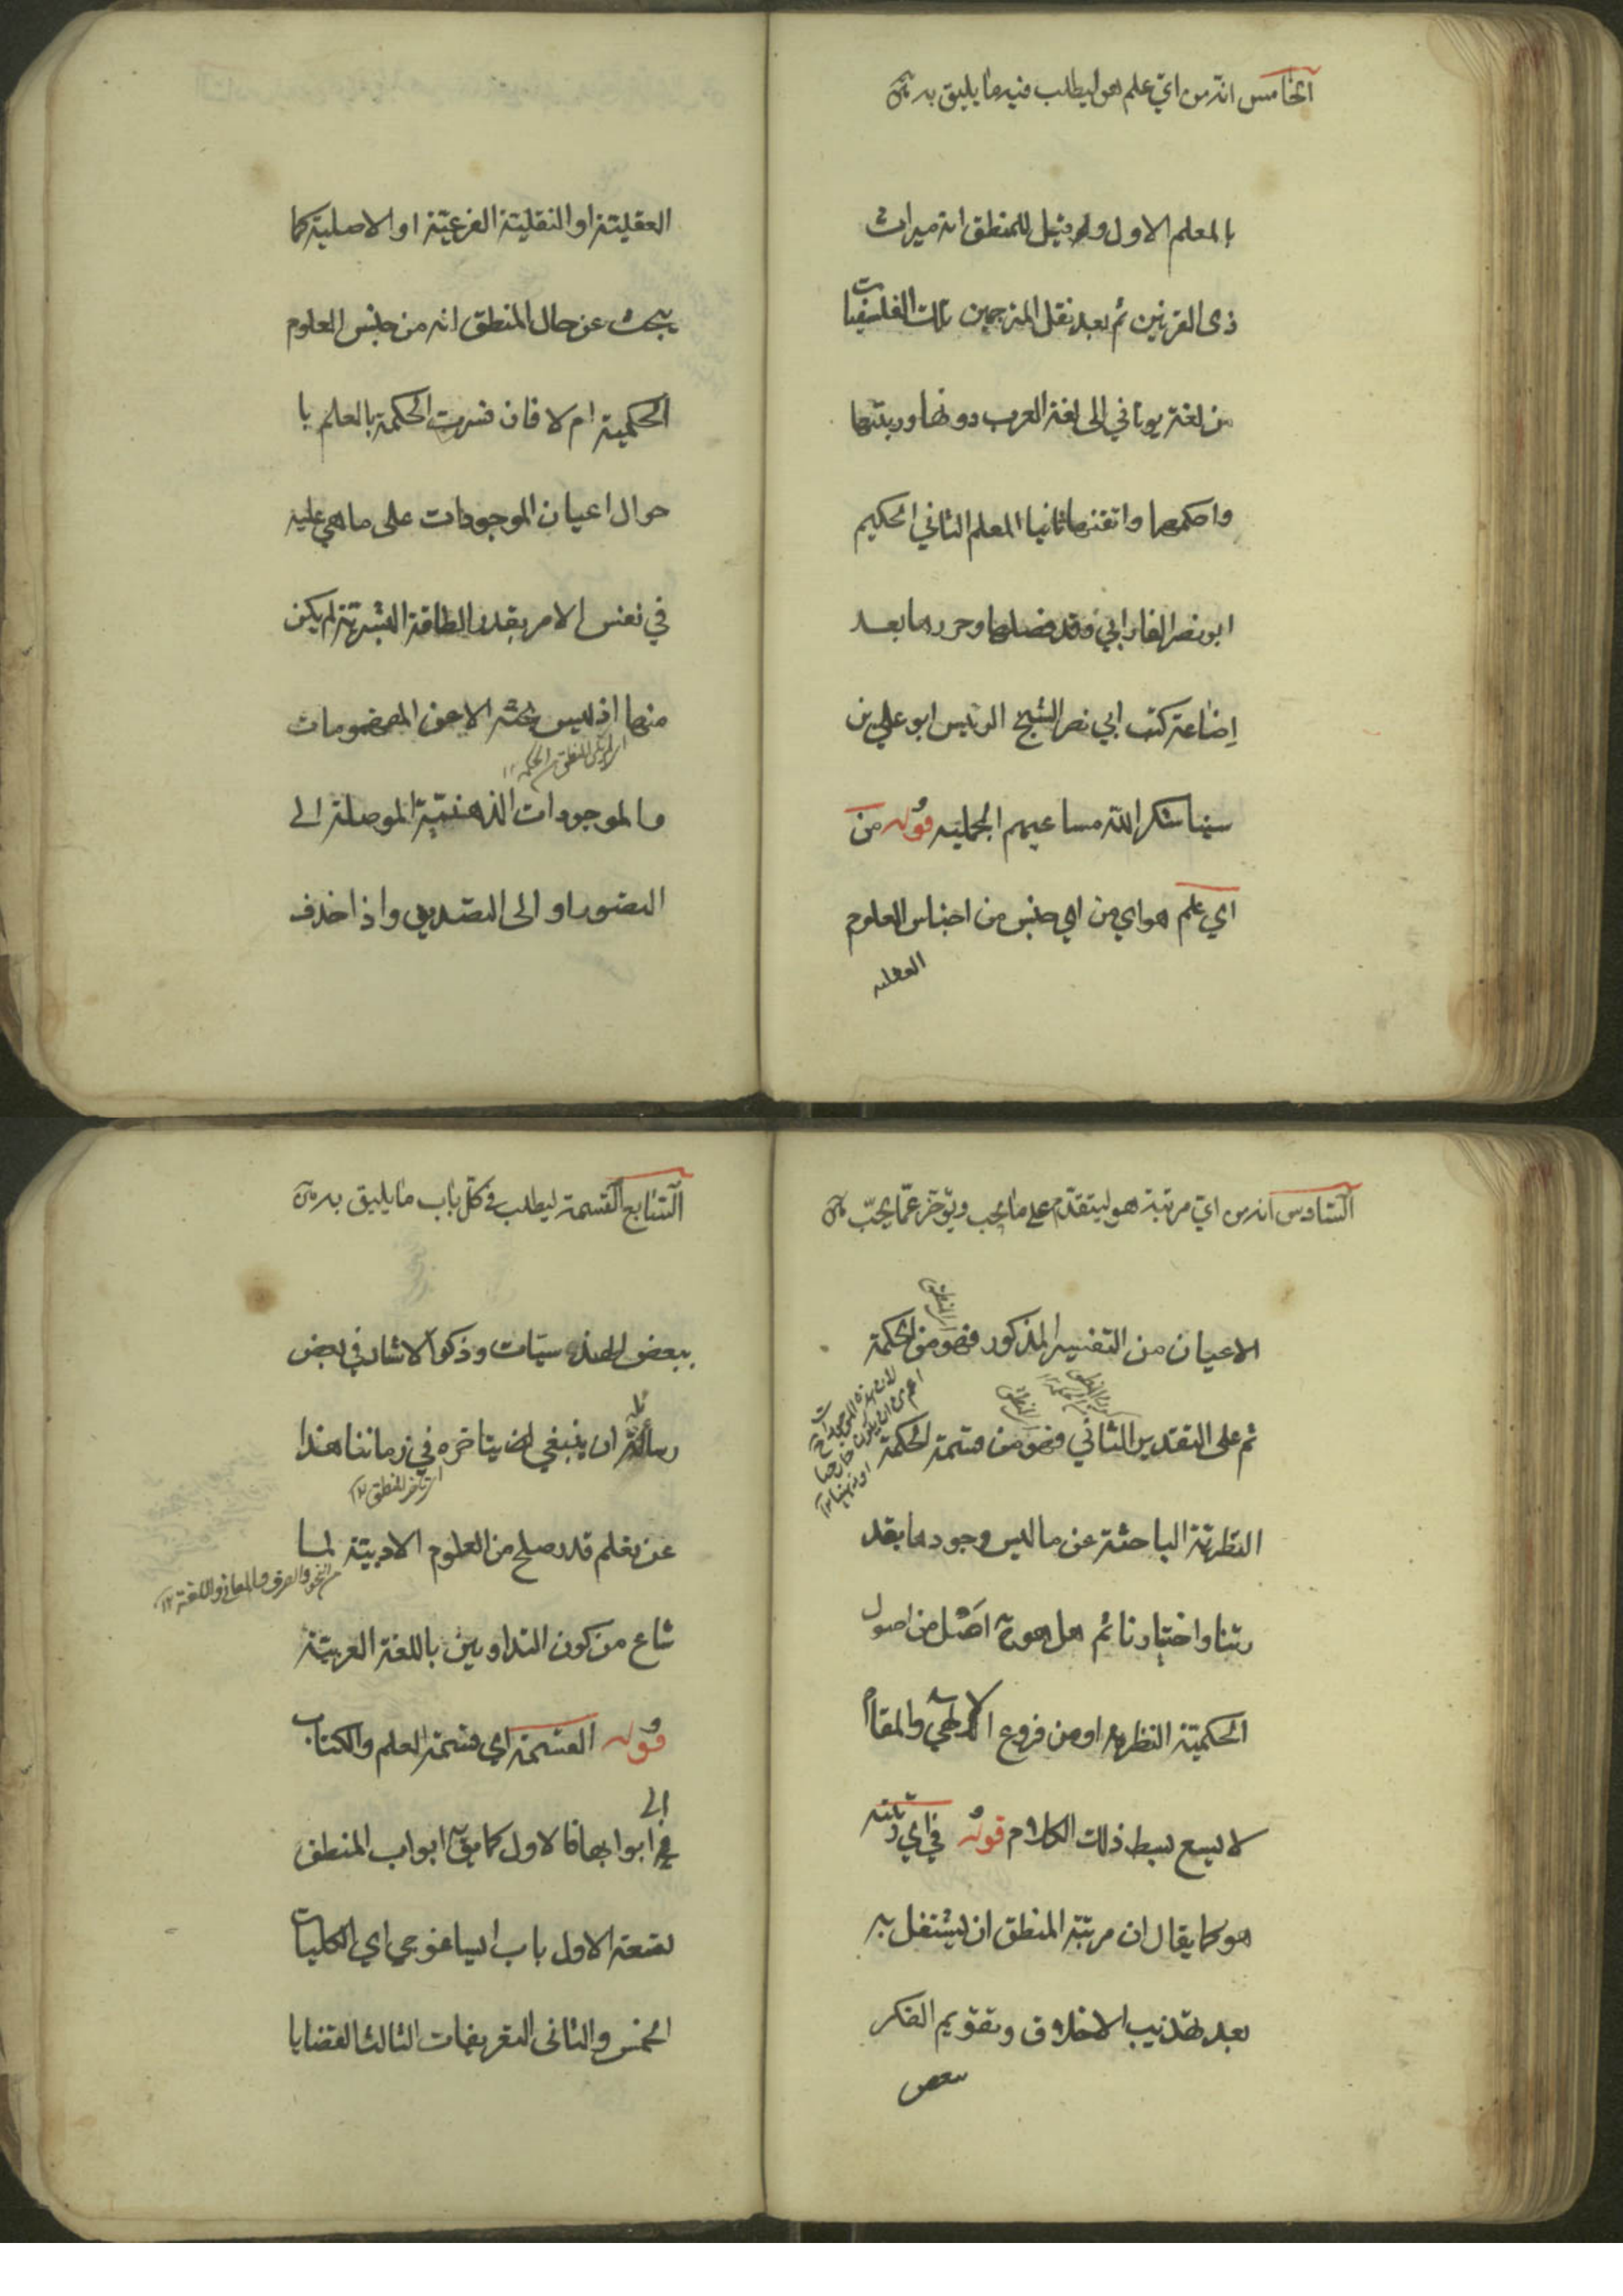 الخامس انه من اي علم هو ليطلب فيه ما يليق به
بالمعلم الاول وله قيل للمنطق انه ميراث
ذى القرنين ثم بعد نقل المترجمين تلك الفلسفيات
من لغة يوناني الى لغة العرب دونها ورتبها
واحكمها واتقنها ثانيا المعلم الثاني الحكيم
ابو نصر الفارابي وقد فصلها وحررها بعد
إضاعة كتب ابي نصر الشيخ الرئيس ابو علي بن
سينا شكر الله مساعيهم الجميلة قوله من
اي علم هو اي من اي جنس من اجناس العلوم
العقلية
العقلية او النقلية الفرعية او الاصلية كما
يبحث عن حال المنطق انه من جنس العلوم
الحكمية ام لا فان فسرت الحكمة بالعلم با
حوال اعيان الموجودات على ما هي عليه
في نفس الامر بقدر الطاقة البشرية لم يكن
منها اذ ليس بحثه الا عن المفهومات
اى لم يكن المنطق من الحكمة ١٢
والموجودات الذهنية الموصلة الى
التصور او الى التصديق واذا حذف
السادس انه من اي مرتبة هو ليتقدم على ما يجب ويؤخر عما يجب
الاعيان من التفسير المذكور فهو من الحكمة
اى المنطق
ثم على التقدير الثاني فهو من قسمة الحكمة
لان هذه الموجودات
اعم من ان يكون خارجيا
او ذهنيا ١٢
النظرية الباحثة عن ما ليس وجودها بقد
رتنا واختيارنا ثم هل هو ح اصل من اصول
الحكمية النظرية او من فروع الالهي والمقام
لا يسع بسط ذلك الكلام قوله في اي مرتبة
هو كما يقال ان مرتبة المنطق ان يشتغل به
بعد تهذيب الاخلاق وتقويم الفكر
ببعض
السابع القسمة ليطلب في كل باب ما يليق به
ببعض الهندسيات وذكر الاستاد في بعض
رسائله ان ينبغي ان يتاخره في زماننا هذا
اى تأخر المنطق ١٢
عن تعلم قدر صلح من العلوم الادبية لما
من النحو والصرف والمعاني واللغة ١٢
شاع من كون التداوين باللغة العربية
قوله القسمة اي قسمة العلم والكتاب
الى ابوابها فالاول كما يق ابواب المنطق
تسعة الاول باب ايساغوجي اي الكليات
الخمس والثانى التعريفات الثالث القضايا